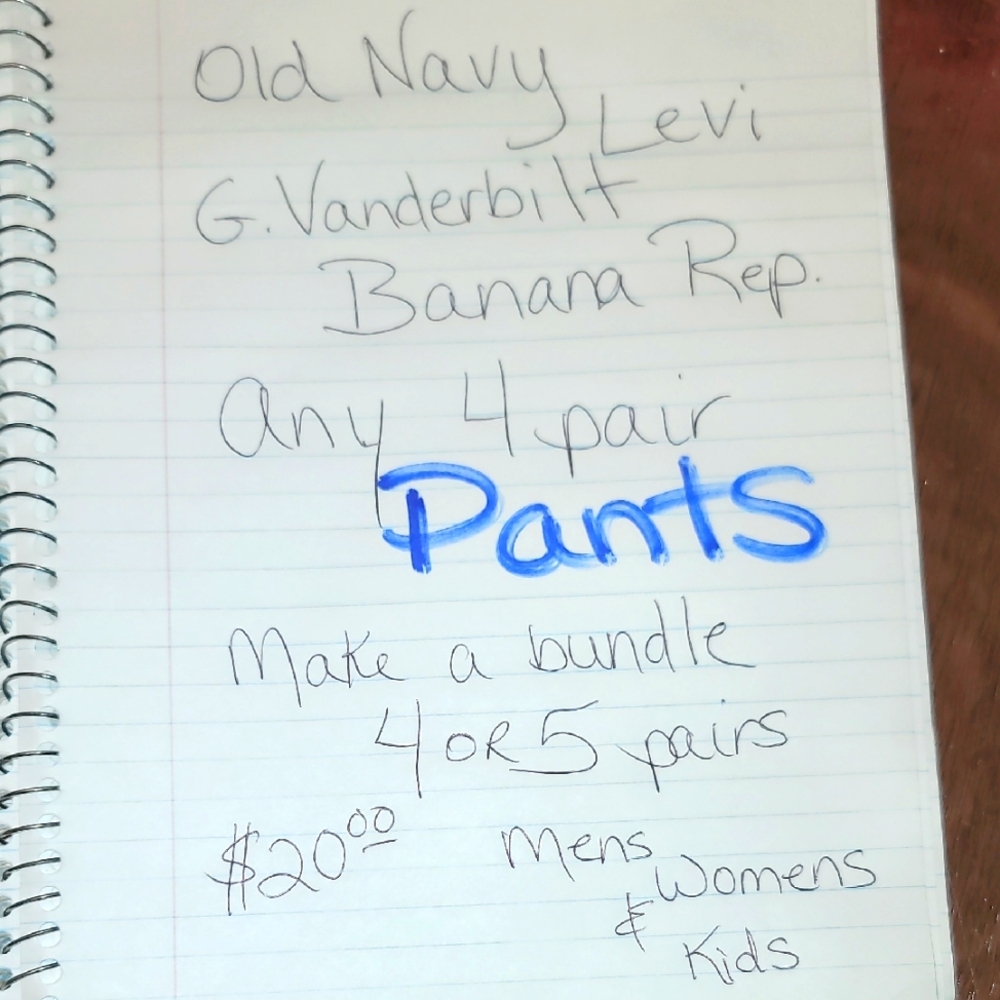 Old Navy
Levi
G. Vanderbilt
Banana Rep.
Any 4 pair
Pants
Make a bundle
4 OR 5 pairs
$20.00 Mens
Womens
& Kids